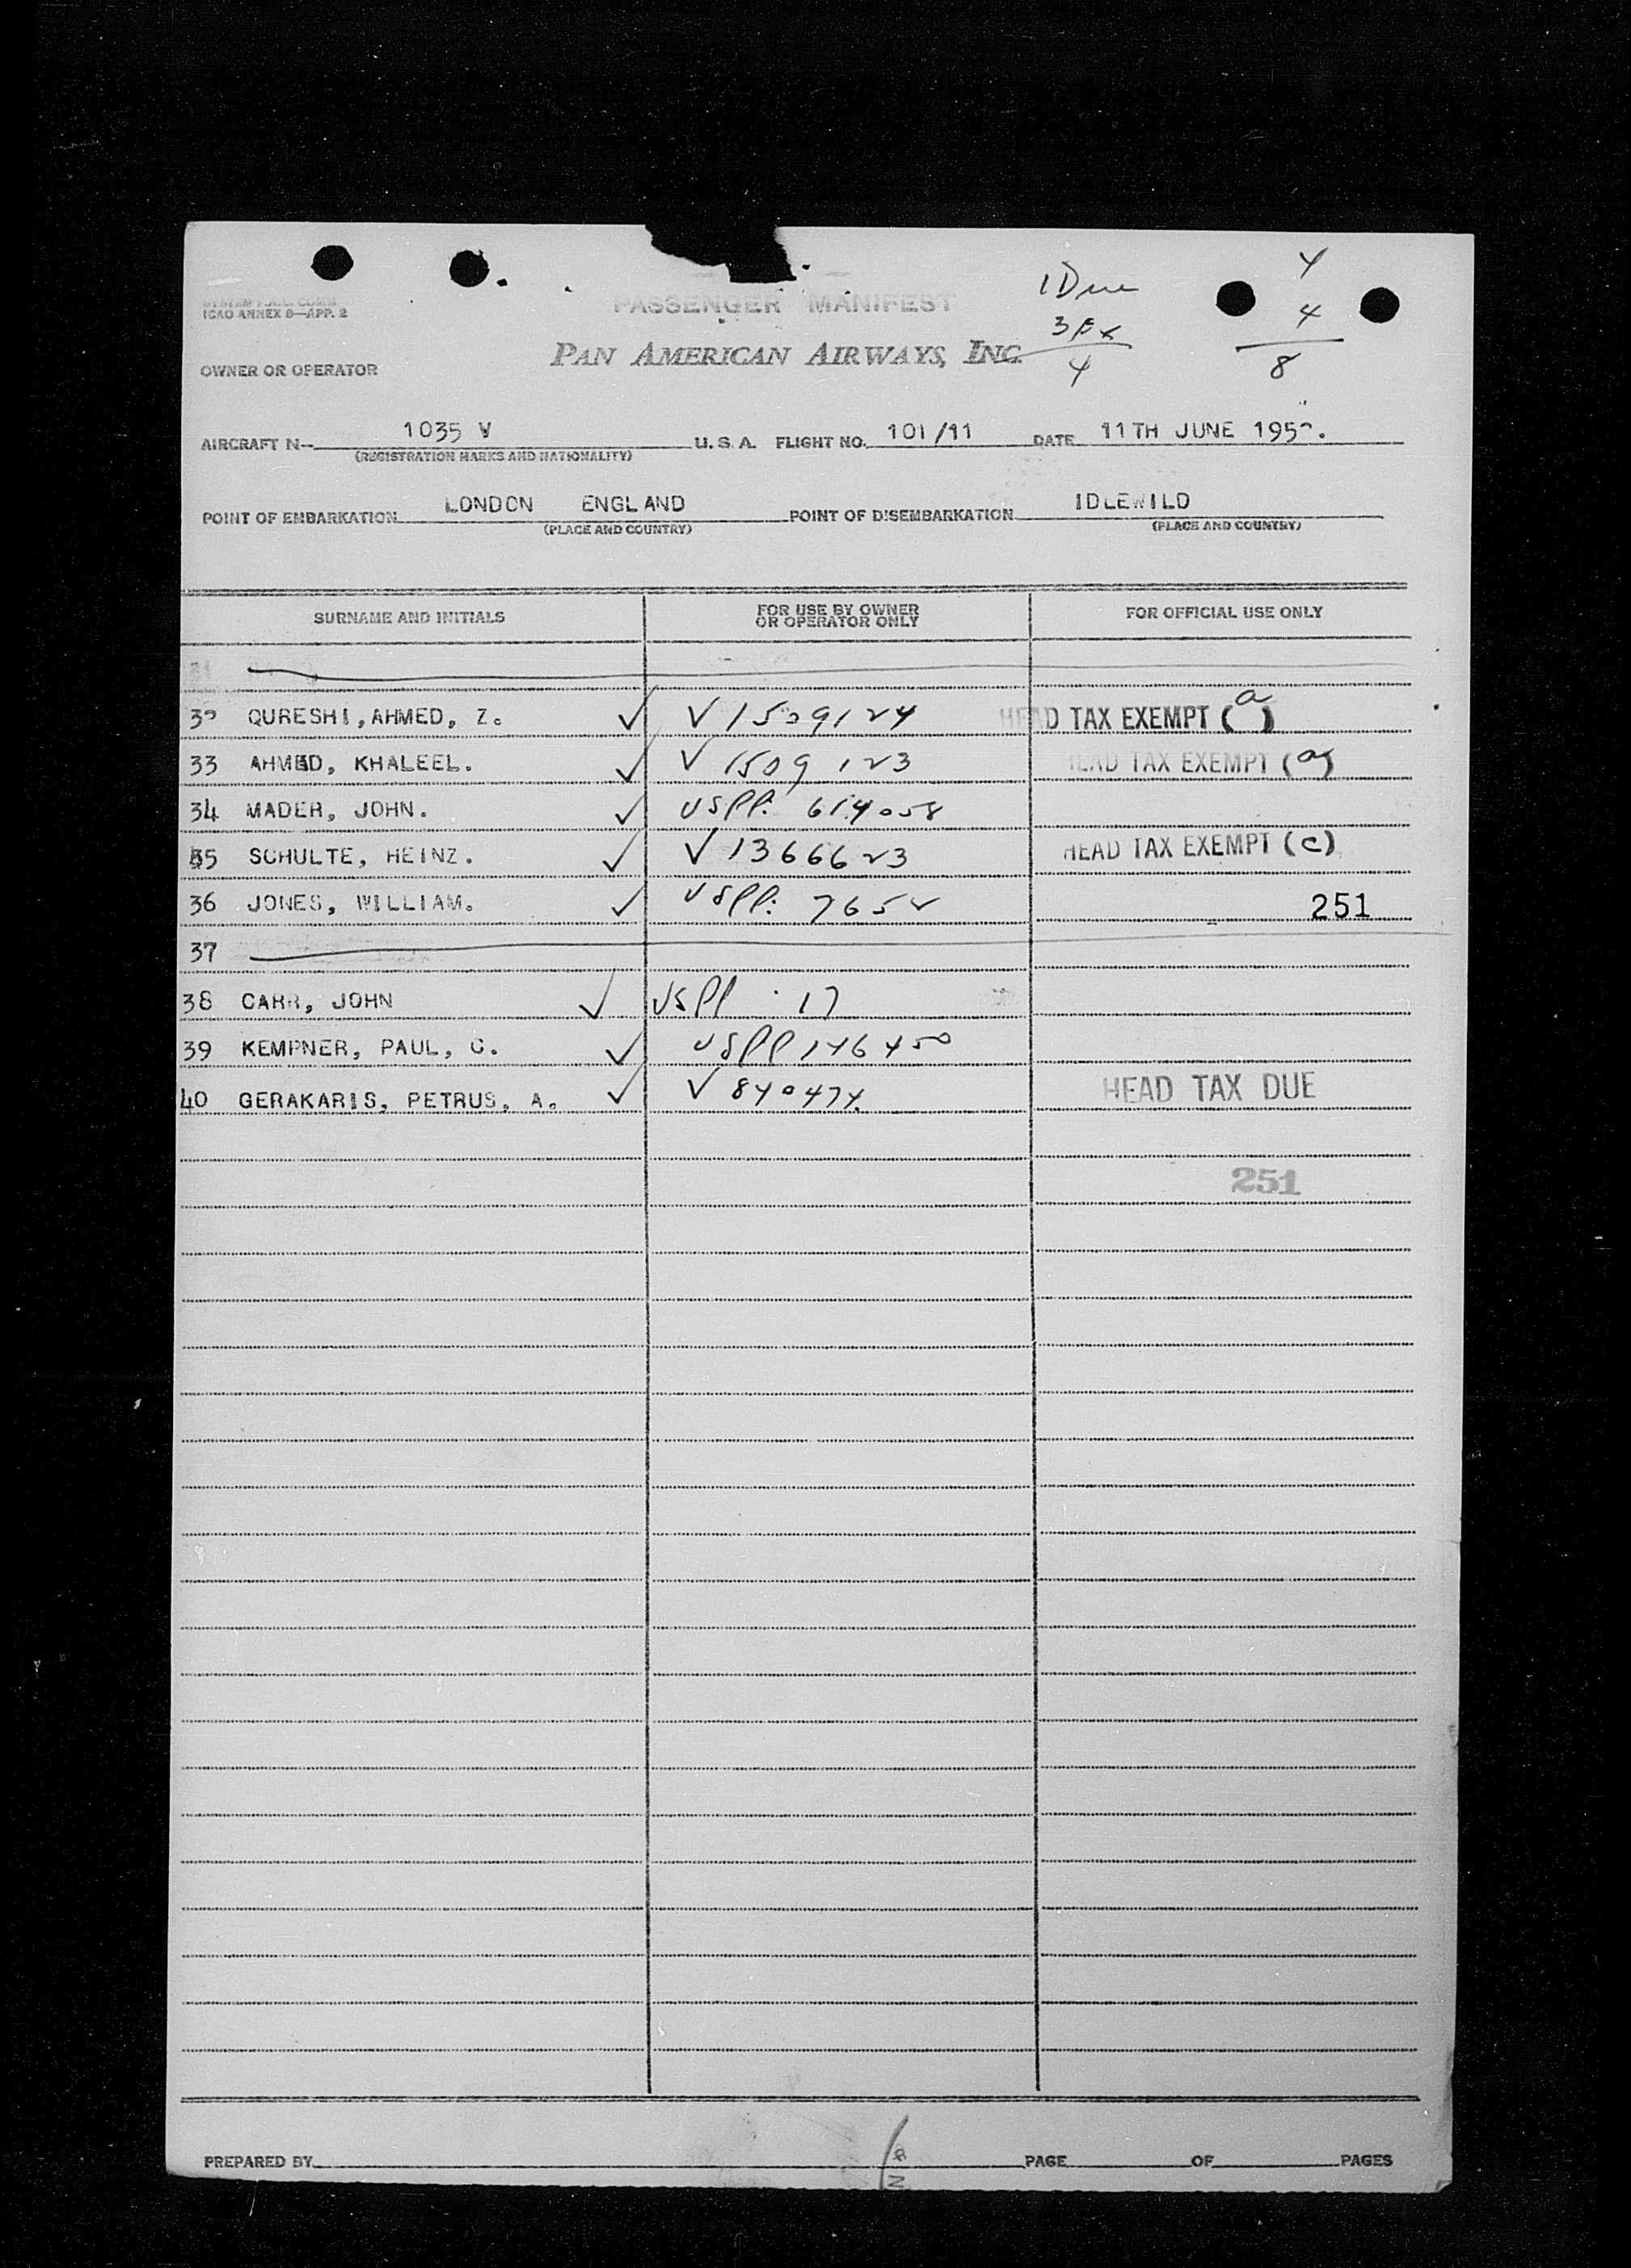 1 Due
3 Ex
4
4
4
8
ICAO ANNEX 9—APP. 2
PASSENGER MANIFEST
PAN AMERICAN AIRWAYS, INC.
OWNER OR OPERATOR
AIRCRAFT N-- 1035 V U. S. A. FLIGHT NO. 101/11 DATE 11TH JUNE
(REGISTRATION MARKS AND NATIONALITY)
POINT OF EMBARKATION LONDON ENGLAND POINT OF DISEMBARKATION IDLEWILD
(PLACE AND COUNTRY) (PLACE AND COUNTRY)
SURNAME AND INITIALS FOR USE BY OWNER OR OPERATOR ONLY FOR OFFICIAL USE ONLY
31
QURESHI, AHMED, Z. ✓ V 1509124 HEAD TAX EXEMPT (a)
33 AHMED, KHALEEL. ✓ V 1509123 HEAD TAX EXEMPT (a)
34 MADER, JOHN. ✓ USPP. 614058
35 SCHULTE, HEINZ. ✓ V 1366623 HEAD TAX EXEMPT (c)
36 JONES, WILLIAM. ✓ USPP. 7652 251
37
38 CARR, JOHN ✓ USPP. 17
39 KEMPNER, PAUL, C. ✓ USPP 146450
40 GERAKARIS, PETRUS, A. ✓ V 840474. HEAD TAX DUE
251
PREPARED BY PAGE OF PAGES